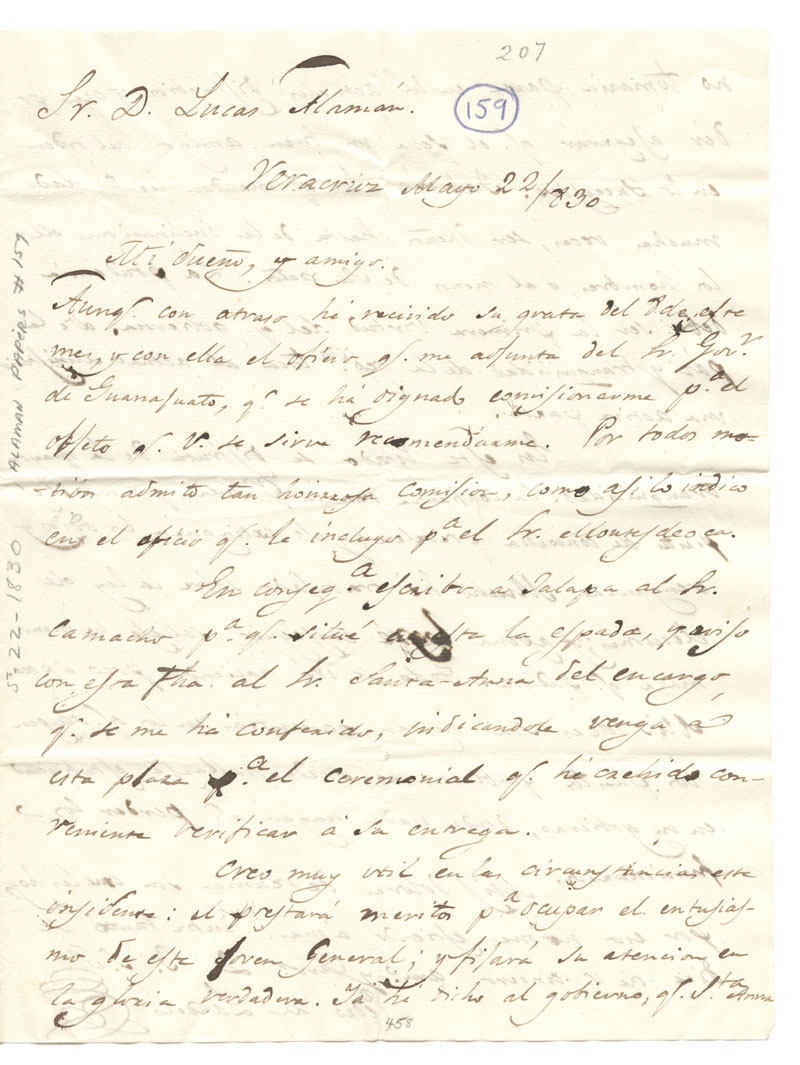 207
Sr. D. Lucas Alamán.
159
Veracruz Mayo 22/830
Mi dueño, y amigo.
Aunq. con atraso hé recivido su grata del 8 de este
mes, y con ella el oficio q. me adjunta del Sr. Gov.r
de Guanajuato, q. se há dignado comisionarme p.a el
objeto q. V. se sirve recomendarme. Por todos mo-
tivos admito tan honrrosa comision, como asi lo indico
en el oficio q. le incluyo p.a el Sr. Montesdeoca.
En conseq.a escribo a Jalapa al Sr.
Camacho p.a q. situé a esta la espada, y aviso
con esta fha. al Sr. Santa-Anna del encargo,
q. se me há conferido, indicandole venga á
esta plaza p.a el ceremonial q. hé crehido con-
veniente verificar á su entrega.
Creo muy util en las circunstancias este
insidente: el prestará merito p.a ocupar el entusias-
mo de este Joven General; y fijará su atencion en
la gloria verdadera. Ya hé dicho al gobierno, q. S.ta Anna
458
5-22-1830 ALAMAN PAPERS # 159